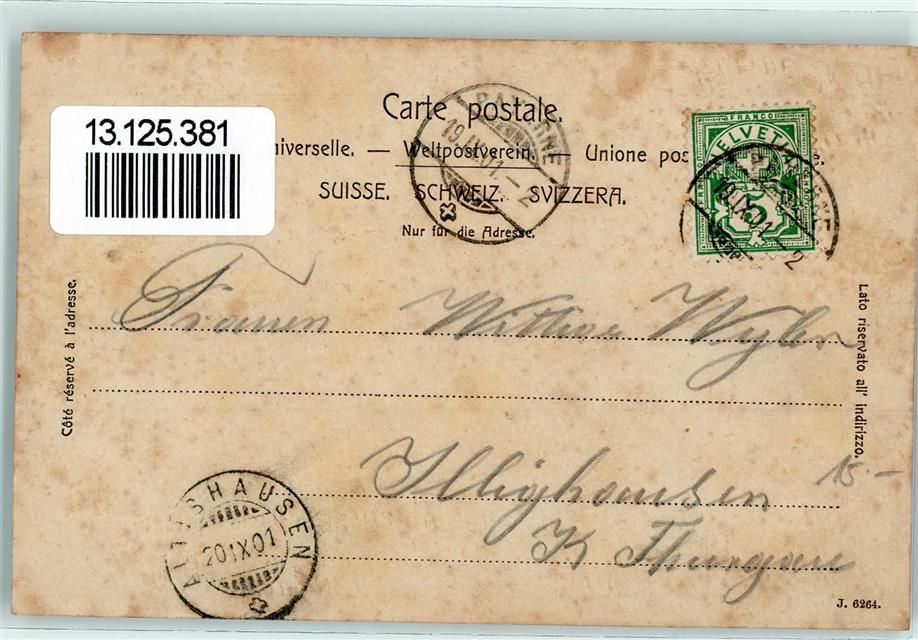 Carte postale.
13.125.381
niverselle. — Weltpostverein. Unione pos
SUISSE. SCHWEIZ. SVIZZERA.
Nur für die Adresse.
FRANCO
HELVETIA
5
19.IX.01.–2
19.IX.01.–2
Côté réservé à l'adresse.
Lato riservato all' indirizzo.
Frauen Wittwe Wyler
Illighausen
15-
K Thurgau
ALTISHAUSEN
20 IX 01
J. 6264.